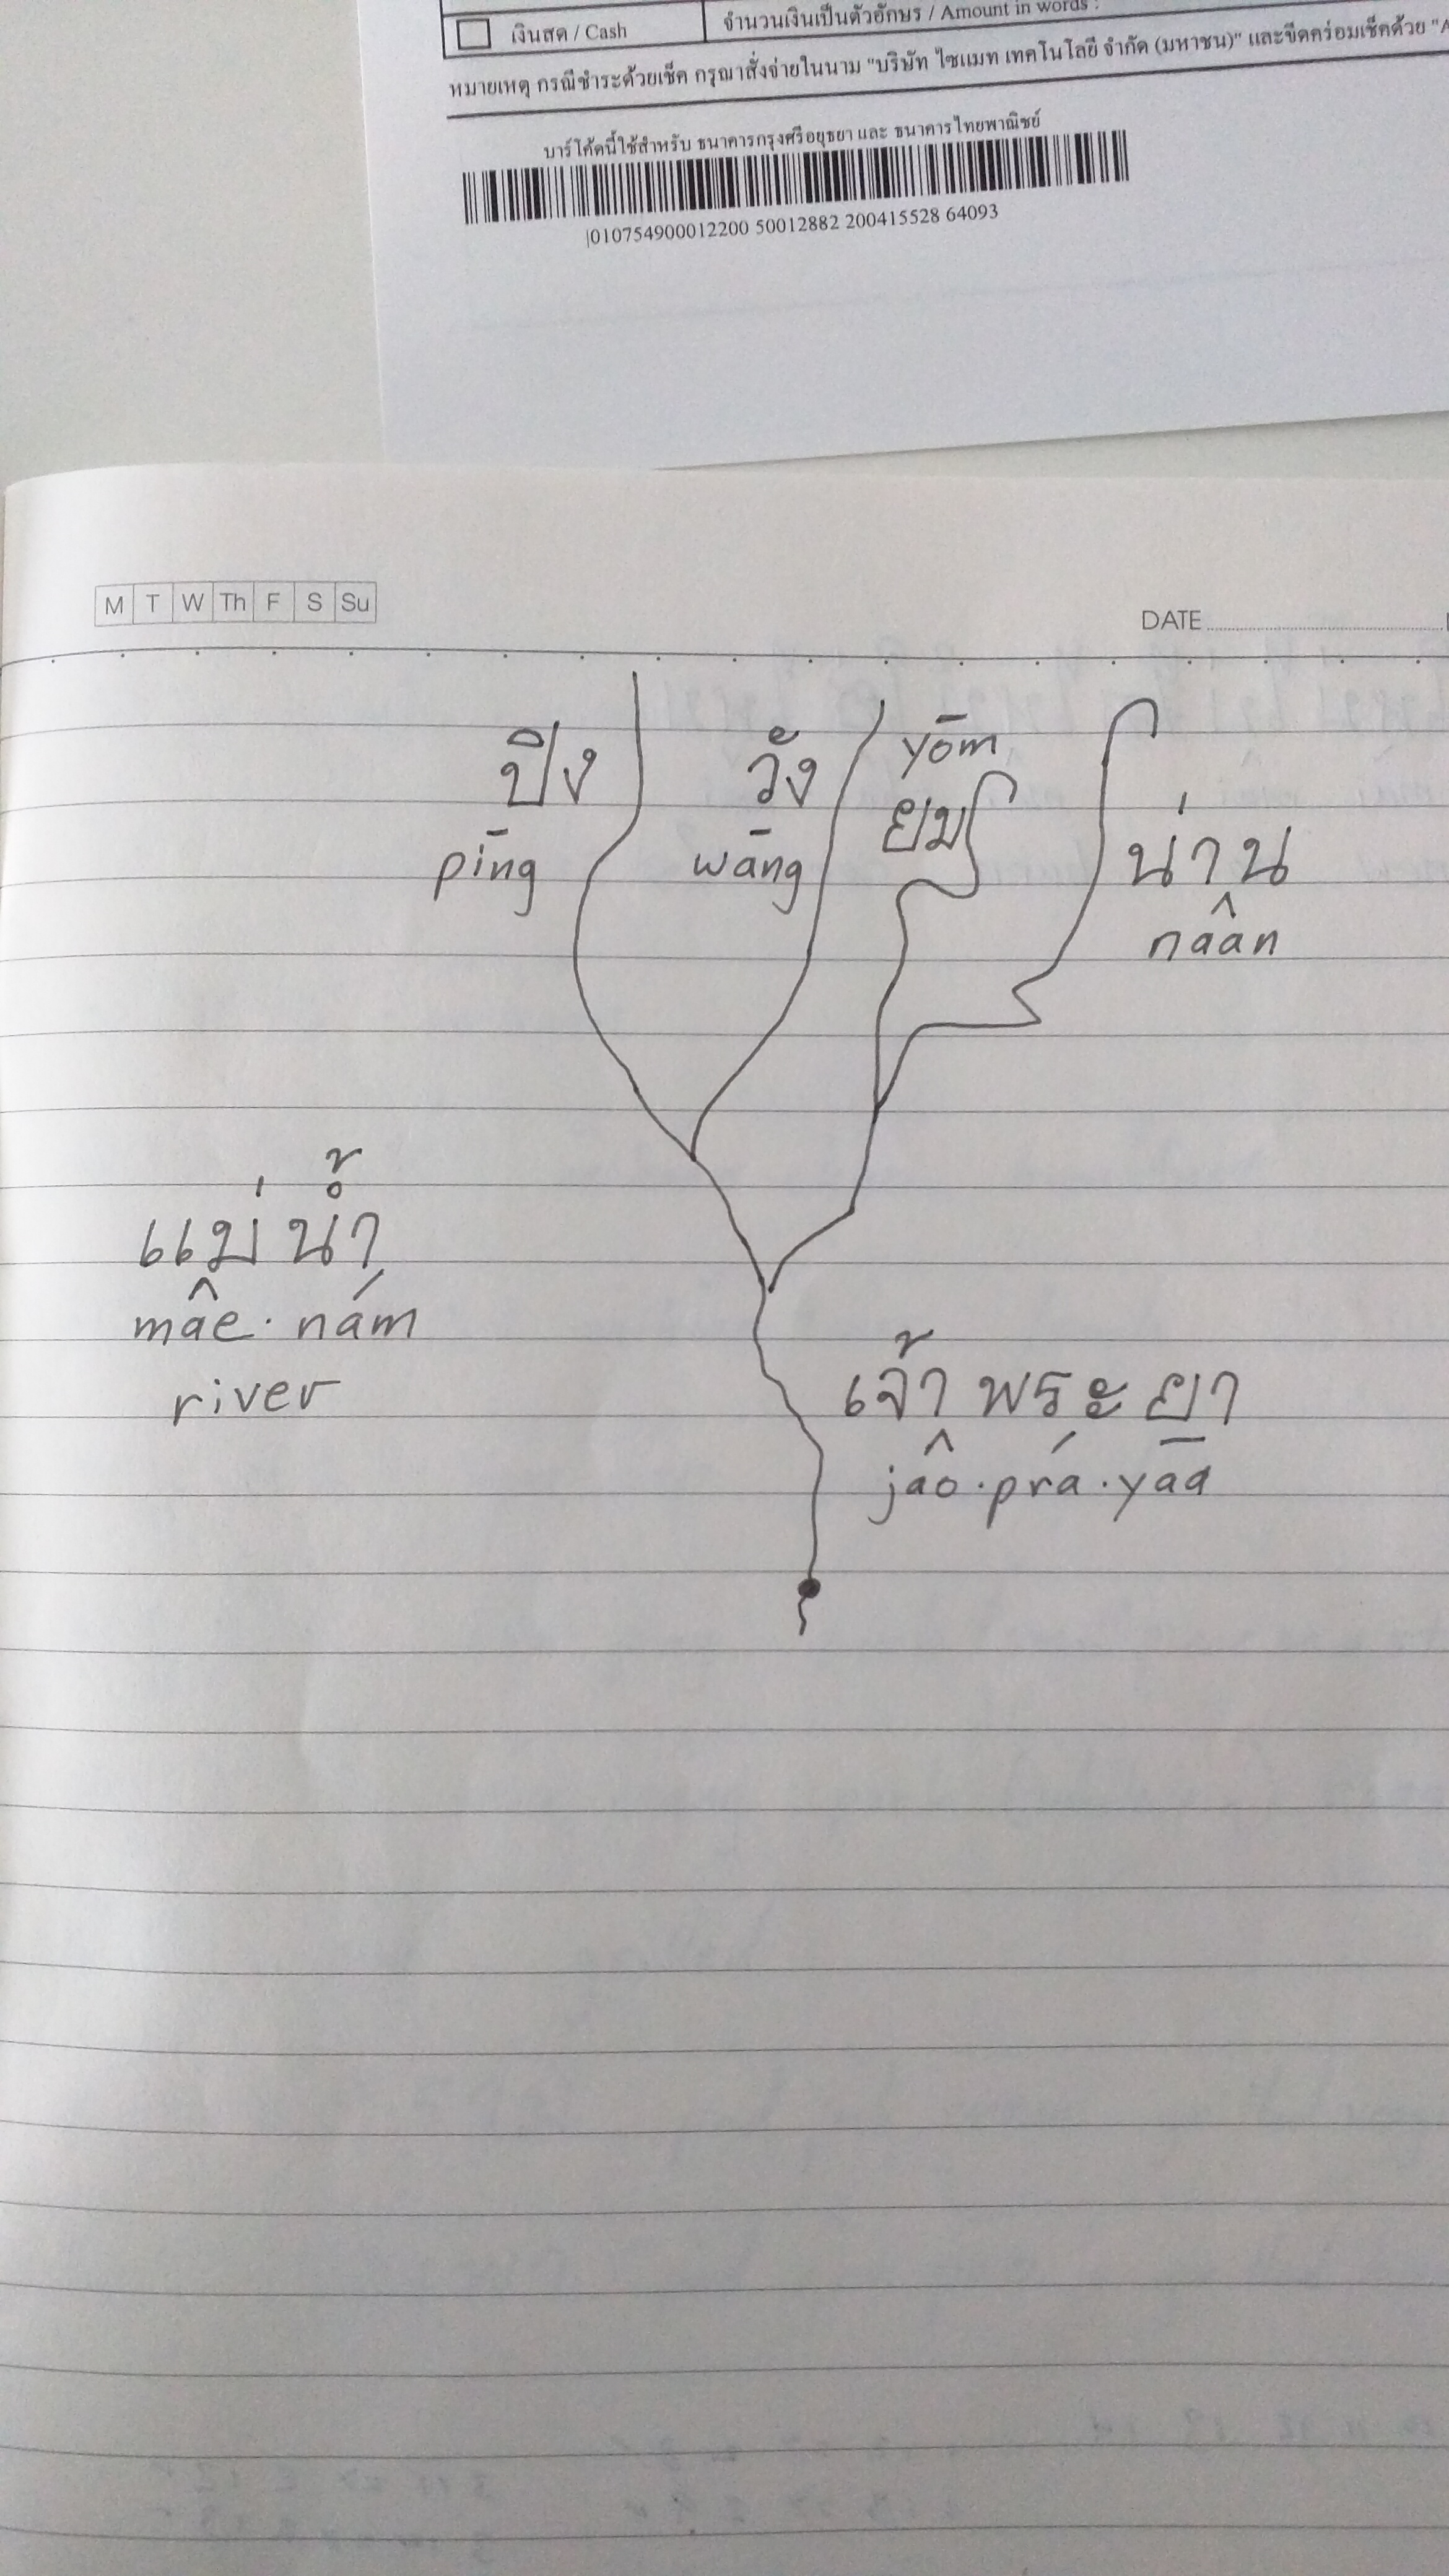 เงินสด / Cash
จำนวนเงินเป็นตัวอักษร / Amount in words :
หมายเหตุ กรณีชำระด้วยเช็ค กรุณาสั่งจ่ายในนาม "บริษัท ไซแมท เทคโนโลยี จำกัด (มหาชน)" และขีดคร่อมเช็คด้วย "A
บาร์โค้ดนี้ใช้สำหรับ ธนาคารกรุงศรีอยุธยา และ ธนาคารไทยพาณิชย์
|010754900012200 50012882 200415528 64093
M T W Th F S Su
DATE
ปิง
pīng
วัง
wāng
yōm
ยม
น่าน
nâan
แม่น้ำ
mâe·nám
river
เจ้าพระยา
jâo·prá·yāa